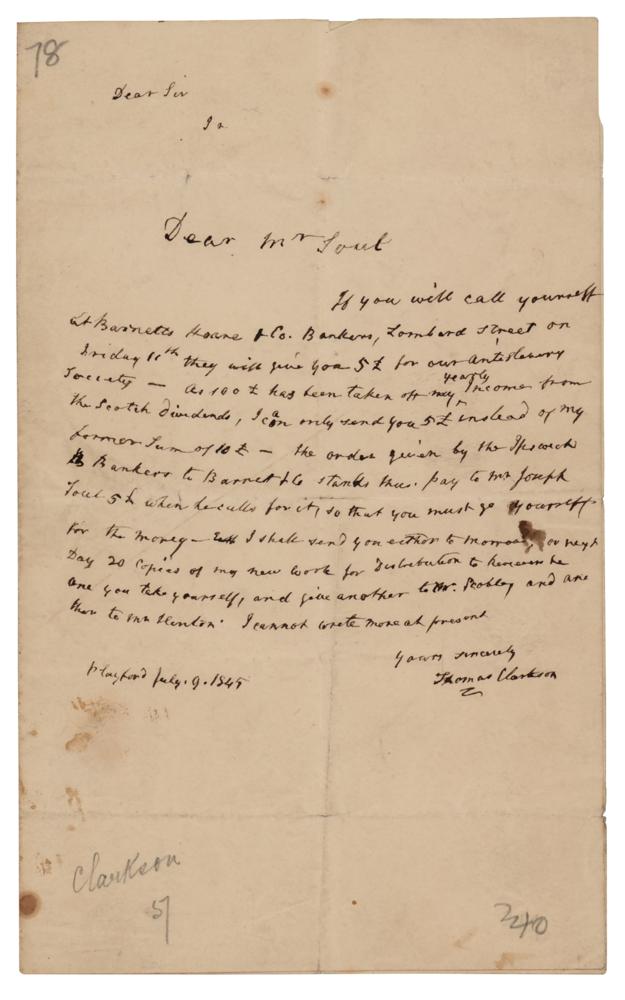 78
Dear Sir
I
Dear Mr Soul
If you will call yourself
at Barnetts Hoare & Co. Bankers, Lombard Street on
Friday 11th they will give you 5£ for our Antislavery
Society — As 100£ has been taken off my yearly Income from
the Scotch dividends, I can only send you 5£ instead of my
former Sum of 10£ — the order given by the Ipswich
Bankers to Barnet & Co stands thus. Pay to Mr Joseph
Soul 5£ when he calls for it, so that you must go yourself
for the money — I shall send you either to morrow, or next
Day 20 Copies of my new work for Distribution to
one you take yourself, and give another to Mr. Scobley and ano
ther to Mr Hinton. I cannot write more at present
Yours sincerely
Thomas Clarkson
Playford July. 9. 1845
Clarkson
5/
240